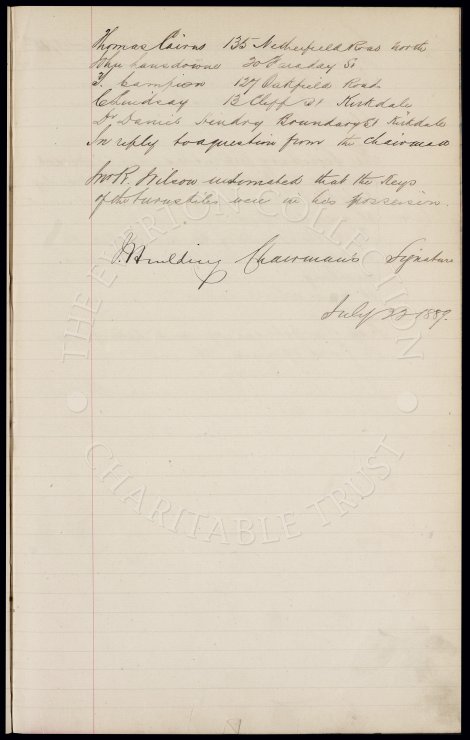 Thomas Cairns 135 Netherfield Road North
Lansdowne 20 Faraday St
T. Campion 127 Oakfield Road
C Lindsay 13 Cliff St Kirkdale
Dr Daniel Hendry Boundary St Kirkdale
In reply to a question from the Chairman
R. Wilson intimated that the Keys
of the turnstiles were in his possession.
J Houlding Chairman's Signature
July 1889.
THE EVERTON COLLECTION
CHARITABLE TRUST